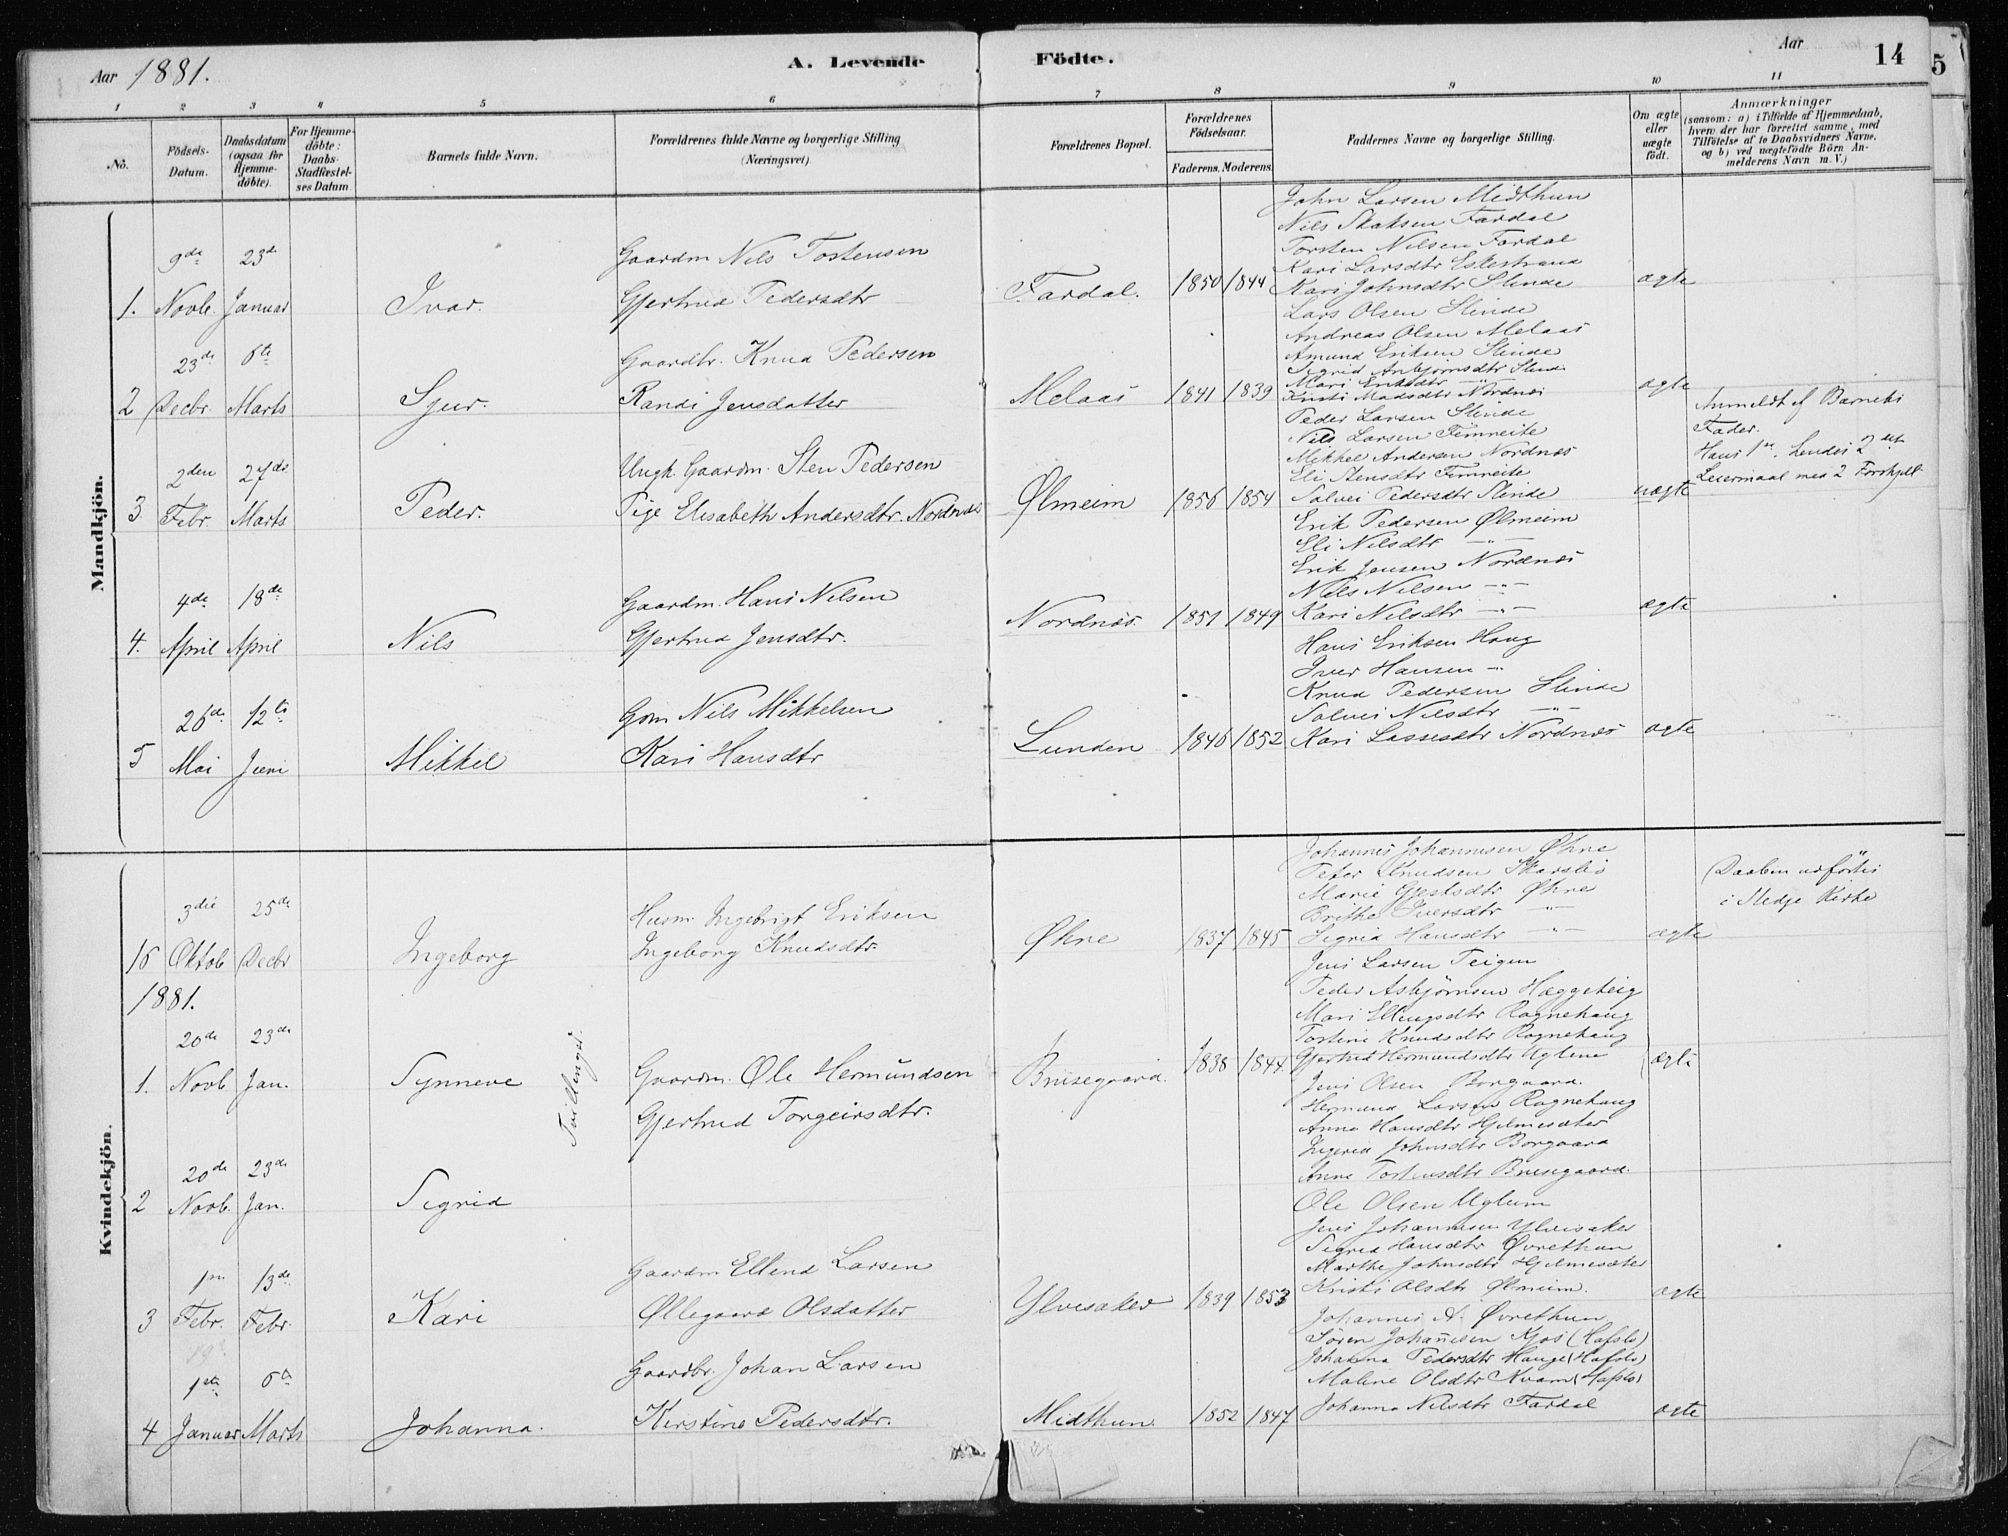 Aar 1881.
A. Levende Födte.
Aar
14
5
1 2 3 4 5 6 7 8 9 10 11
No.
Födsels-Datum.
Daabsdatum (ogsaa for Hjemme-döbte).
For Hjemme-döbte: Daabs-Stadfæstel-ses Datum
Barnets fulde Navn.
Forældrenes fulde Navne og borgerlige Stilling (Næringsvei).
Forældrenes Bopæl.
Forældrenes Födselsaar.
Faderens. Moderens.
Faddernes Navne og borgerlige Stilling.
Om ægte eller uægte födt.
Anmærkninger
(saasom: a) i Tilfælde af Hjemmedaab, hvem der har forrettet samme, med Tilföielse af to Daabsvidners Navne. og b) ved uægtefödte Börn Anmelderens Navn m. V.)
Mandkjön.
1. 9de Novb. 23de Januar
Ivar.
Gaardm. Nils Tostensen
Gjertrud Pedersdtr
Fardal.
1850 1844
John Larsen Midthun
Nils Staksen Fardal
Torsten Nilsen Fardal
Kari Larsdtr Eskestrand
Kari Johnsdtr Slinde
ægte
2 23de Decbr. 6te Marts
Sjur.
Gaardbr. Knud Pedersen
Randi Jensdatter
Melaas
1841 1839
Lars Olsen Slinde
Andreas Olsen Melaas
Amund Eriksen Slinde
Sigrid Anbjørnsdtr Slind.
Mari Eriksdtr —"—
ægte
3 2den Febr. 27de Marts
Peder.
Ungk. Gaardm. Sten Pedersen
Pige Elisabeth Andersdtr. Nordnæs
Ølmeim
1856 1854
Kristi Madsdtr Nordnæs
Peder Larsen Slinde
Nils Larsen Fimreite
Mikkel Andersen Nordnæs
Eli Stensdtr Fimreite
Solvei Pedersdtr Slinde
uægte
Anmeldt af Barnets
Fader.
Hans 1ste, hendes 2det
Leiermaal med 2 Forskjell
4. 4de April 18de April
Nils
Gaardm. Hans Nilsen
Gjertrud Jensdtr.
Nordnæs.
1851 1849
Erik Pedersen Ølmeim
Eli Nilsdtr —"—
Erik Jensen Nordnæs
Nils Nilsen —"—
Kari Nilsdtr —"—
ægte
5 26de Mai 12te Juni
Mikkel
Gom Nils Mikkelsen
Kari Hansdtr
Lunden
1846 1852
Hans Eriksen Haug
Iver Hansen —"
Knud Pedersen Slinde
Solvei Nilsdtr —"—
Kari Lassesdtr Nordnæs
ægte
Kvindekjön.
16 3die Oktob 25de Decbr
Ingeborg
Husm. Ingebrigt Eriksen
Ingeborg Knudsdtr.
Øhne
1837 1845
Johannes Johannesen Øhne
Peter Knudsen Skarsbö
Marie Gjestsdtr Øhne
Brithe Iversdtr —"—
Sigrid Hansdtr —"—
ægte
Daaben udförtes
i Stedje Kirke
1881.
1. 20de Novb 23de Jan.
Synneve
Tvillinger.
Gaardm. Ole Hermundsen
Gjertrud Torgeirsdtr.
Brusegaard.
1838 1844.
Jens Larsen Teigen
Peder Asbjørnsen Hæggeteig
Mari Ellingsdtr Rognehaug
Tostine Knudsdtr Rognehaug
Gjertrud Hermundsdtr Uglum
ægte
2 20de Novb. 23de Jan.
Sigrid
Jens Olsen Borgaard.
Hermund Larsen Rognehaug
Anna Hansdtr Hjelmesæter
Ingerid Johnsdtr Borgaard
Anne Tostensdtr Brusegaard.
3 1ste Febr. 13de Febr.
Kari
Gaardm Ellend Larsen
Øllegaard Olsdatter
Ylvisaker
1839 1853
Ole Olsen Uglum
Jens Johannesen Ylvisaker
Sigrid Hansdtr Øvrethun
Marthe Johnsdtr Hjelmesæter
Kristi Olsdtr Ølmeim.
ægte
4 1ste Januar 6te Marts
Johanna.
Gaardbr. Johan Larsen
Kerstine Pedersdtr.
Midthun
1852 1847
Johannes A. Øvrethun
Sören Johañesen Kjos (Hafslo)
Johanna Pedersdtr Hauge (Hafslo)
Malene Olsdtr Kvam (Hafslo)
Johanna Nilsdtr Fardal
ægte